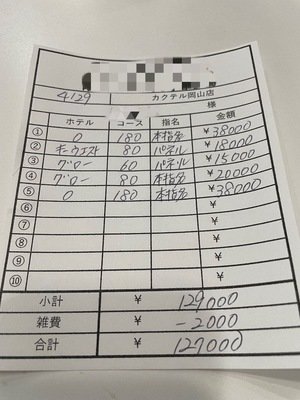 4129 カクテル岡山店
様
ホテル コース 指名 金額
① 0 180 本指名 ¥38000
② キーウエスト 80 パネル ¥18000
③ グロー 60 パネル ¥15000
④ グロー 80 本指名 ¥20000
⑤ 0 180 本指名 ¥38000
⑥ ¥
⑦ ¥
⑧ ¥
⑨ ¥
⑩ ¥
小計 ¥ 129000
雑費 ¥ -2000
合計 ¥ 127000